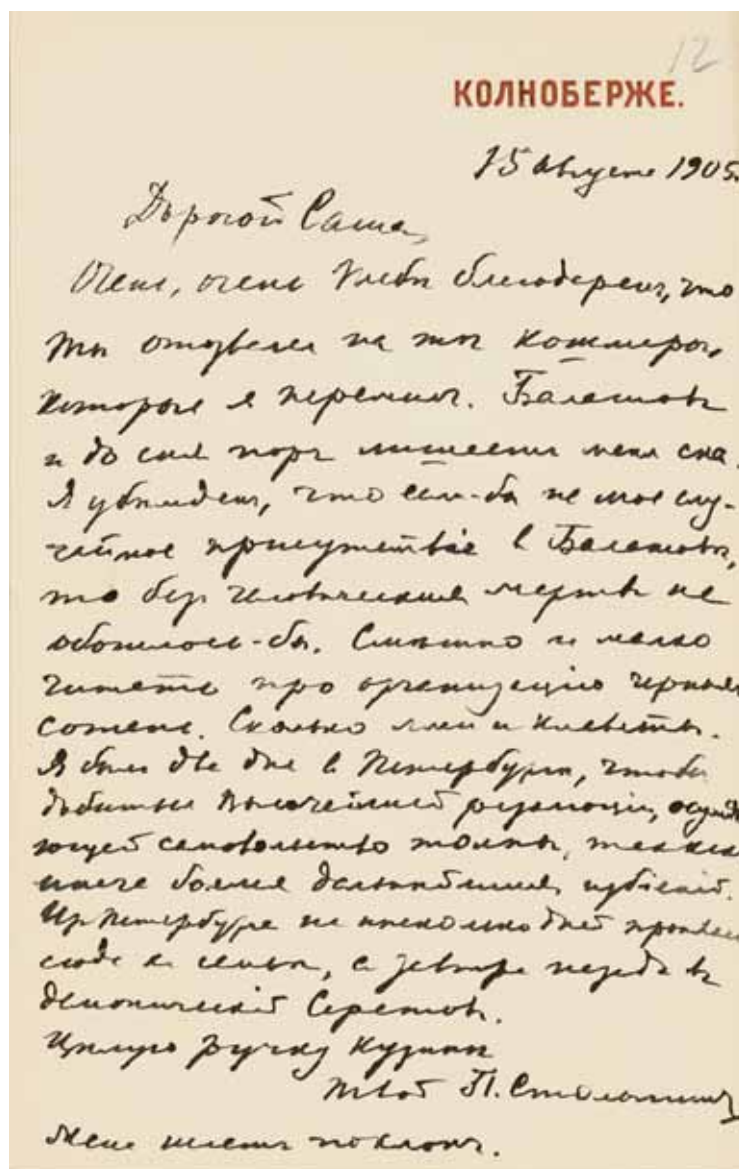 12
КОЛНОБЕРЖЕ.
15 августа 1905.
Дорогой Саша,
Очень, очень Тебе благодарен, что
Ты отозвался на тот кошмар,
который я пережил. Балашов
и до сих пор лишает меня сна.
Я убежден, что если-бы не мое слу-
чайное присутствие в Балашове,
то без человеческих жертв не
обошлось-бы. Смешно и жалко
читать про организацию черных
сотень. Сколько лжи и клеветы.
Я был два дня в Петербурге, чтобы
добиться Высочайшей резолюции, осужда
ющей самовольство толпы, так как
иначе боялся дальнейших избиений.
Из Петербурга на несколько дней проехал
сюда к семье, а завтра назад в
демонический Саратов.
Целую ручку кузины
твой П. Столыпин
Жена шлет поклон.